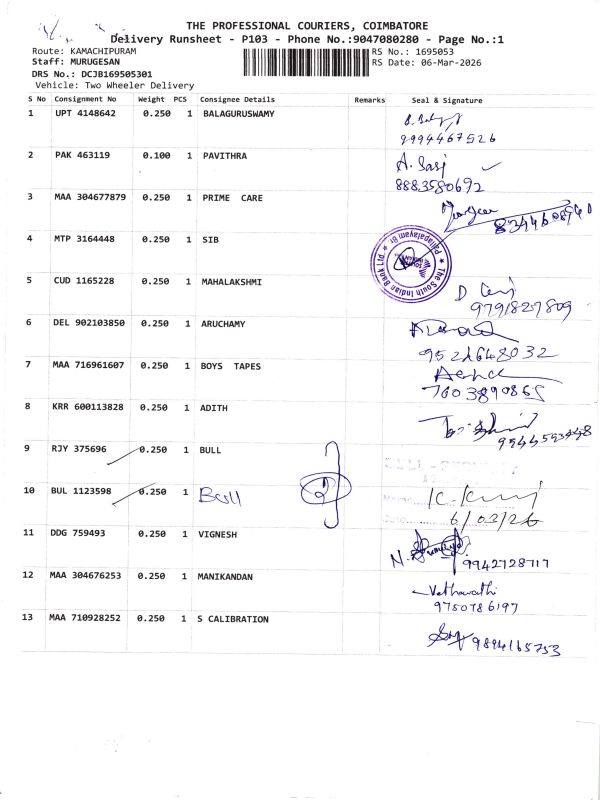 THE PROFESSIONAL COURIERS, COIMBATORE
Delivery Runsheet - P103 - Phone No.:9047080280 - Page No.:1
Route: KAMACHIPURAM RS No.: 1695053
Staff: MURUGESAN RS Date: 06-Mar-2026
DRS No.: DCJB169505301
Vehicle: Two Wheeler Delivery
S No Consignment No Weight PCS Consignee Details Remarks Seal & Signature
1 UPT 4148642 0.250 1 BALAGURUSWAMY
9994467526
2 PAK 463119 0.100 1 PAVITHRA A. Sasi
8883580692
3 MAA 304677879 0.250 1 PRIME CARE
8344608960
4 MTP 3164448 0.250 1 SIB
The South Indian Bank Ltd
Pallapalayam Br.
5 CUD 1165228 0.250 1 MAHALAKSHMI
9791827809
6 DEL 902103850 0.250 1 ARUCHAMY
9522648032
7 MAA 716961607 0.250 1 BOYS TAPES
7603890865
8 KRR 600113828 0.250 1 ADITH
9944593448
9 RJY 375696 0.250 1 BULL
10 BUL 1123598 0.250 1 Bull
6/03/26
11 DDG 759493 0.250 1 VIGNESH
9942728717
12 MAA 304676253 0.250 1 MANIKANDAN
9750786197
13 MAA 710928252 0.250 1 S CALIBRATION
9894165753